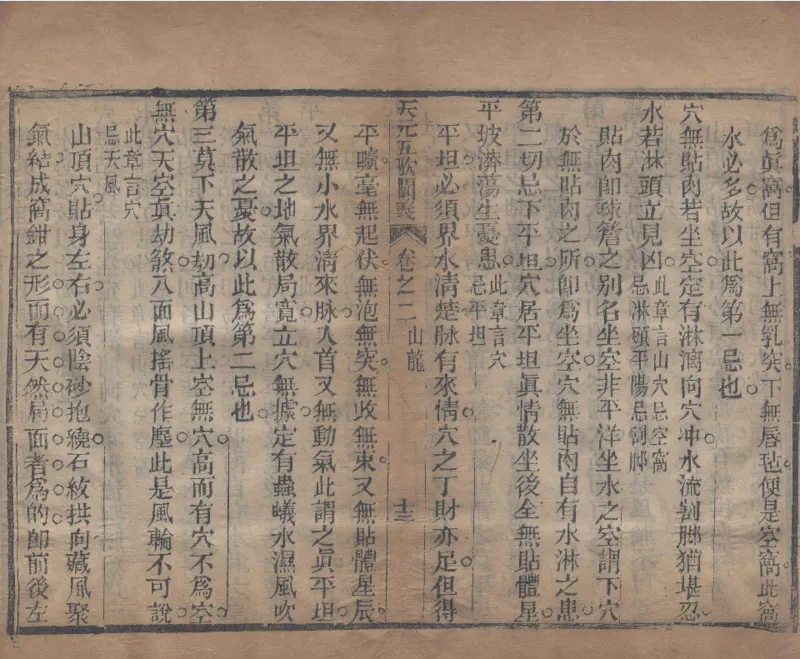 為眞窩但有窩上無乳突下無唇毡便是空窩此窩
水必多故以此為第一忌也
穴無貼肉若坐空定有淋漓向穴冲水流割脚猶堪忍
水若淋頭立見凶此章言山穴忌空窩
忌淋頭平陽忌割脚
貼肉卽球簷之別名坐空非平洋坐水之空謂下穴
於無貼肉之所卽為坐空穴無貼肉自有水淋之患
第二切忌下平坦穴居平坦眞情散坐後全無貼體星
平坡漭蕩生憂患此章言穴
忌平坦
平坦必須界水清楚脉有來情穴之丁財亦足但得
天元五歌闡義 卷之二 山龍 十三
平曠毫無起伏無泡無突無收無束又無貼體星辰
又無小水界清來脉入首又無動氣此謂之眞平坦
平坦之地氣散局寬立穴無據定有蟲蟻水濕風吹
氣散之憂故以此為第二忌也
第三莫下天風劫高山頂上空無穴高而有穴不為空
無穴天空眞劫煞八面風搖骨作塵此是風輪不可說
此章言穴
忌天風
山頂穴貼身左右必須陰砂抱繞石紋拱向藏風聚
氣結成窩鉗之形而有天然局面者為的卽前後左